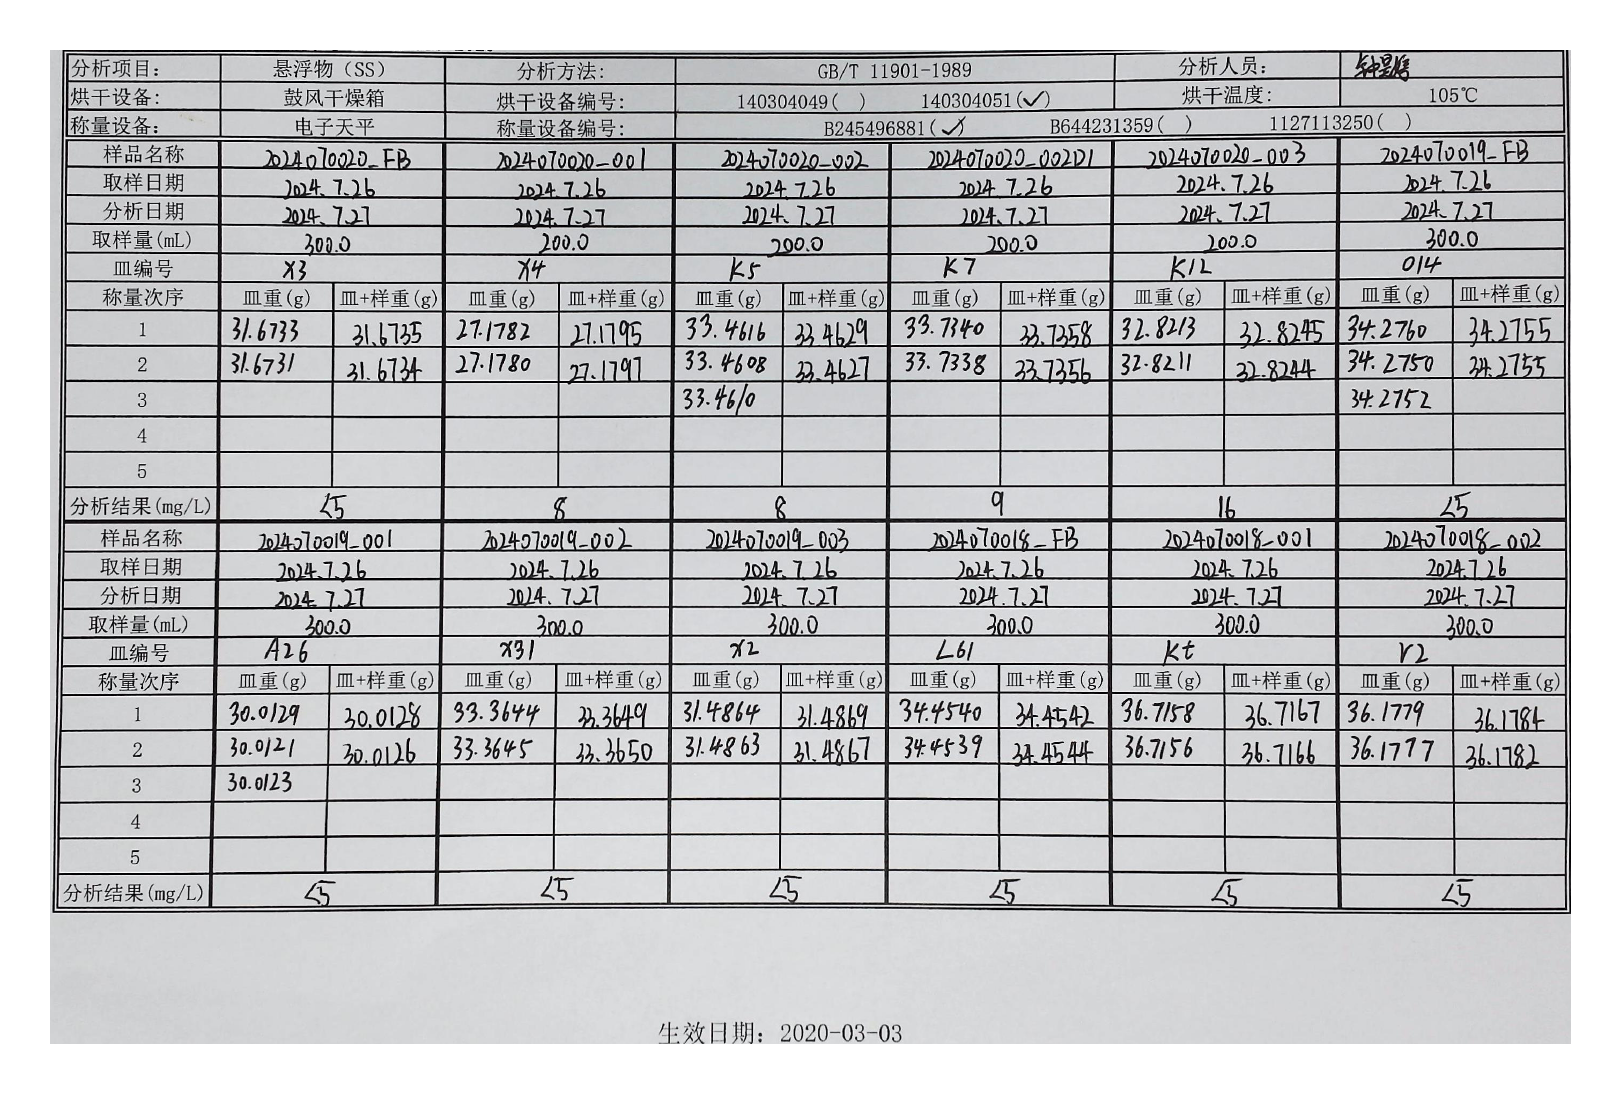 分析项目: 悬浮物（SS） 分析方法: GB/T 11901-1989 分析人员:
烘干设备: 鼓风干燥箱 烘干设备编号: 140304049( ) 140304051(✓) 烘干温度: 105℃
称量设备: 电子天平 称量设备编号: B245496881(✓) B644231359( ) 1127113250( )
样品名称 2024070020-FB 2024070020-001 2024070020-002 2024070020-002D1 2024070020-003 2024070019-FB
取样日期 2024.7.26 2024.7.26 2024.7.26 2024.7.26 2024.7.26 2024.7.26
分析日期 2024.7.27 2024.7.27 2024.7.27 2024.7.27 2024.7.27 2024.7.27
取样量(mL) 300.0 200.0 200.0 200.0 200.0 300.0
皿编号 X3 X4 K5 K7 K12 014
称量次序 皿重(g) 皿+样重(g) 皿重(g) 皿+样重(g) 皿重(g) 皿+样重(g) 皿重(g) 皿+样重(g) 皿重(g) 皿+样重(g) 皿重(g) 皿+样重(g)
1 31.6733 31.6735 27.1782 27.1795 33.4616 33.4629 33.7340 33.7358 32.8213 32.8245 34.2760 34.2755
2 31.6731 31.6734 27.1780 27.1797 33.4608 33.4627 33.7338 33.7356 32.8211 32.8244 34.2750 34.2755
3 33.4610 34.2752
4
5
分析结果(mg/L) <5 8 8 9 16 <5
样品名称 2024070019-001 2024070019-002 2024070019-003 2024070018-FB 2024070018-001 2024070018-002
取样日期 2024.7.26 2024.7.26 2024.7.26 2024.7.26 2024.7.26 2024.7.26
分析日期 2024.7.27 2024.7.27 2024.7.27 2024.7.27 2024.7.27 2024.7.27
取样量(mL) 300.0 300.0 300.0 300.0 300.0 300.0
皿编号 A26 X31 X2 L61 Kt V2
称量次序 皿重(g) 皿+样重(g) 皿重(g) 皿+样重(g) 皿重(g) 皿+样重(g) 皿重(g) 皿+样重(g) 皿重(g) 皿+样重(g) 皿重(g) 皿+样重(g)
1 30.0129 30.0128 33.3644 33.3649 31.4864 31.4869 34.4540 34.4542 36.7158 36.7167 36.1779 36.1784
2 30.0121 30.0126 33.3645 33.3650 31.4863 31.4867 34.4539 34.4544 36.7156 36.7166 36.1777 36.1782
3 30.0123
4
5
分析结果(mg/L) <5 <5 <5 <5 <5 <5
生效日期: 2020-03-03